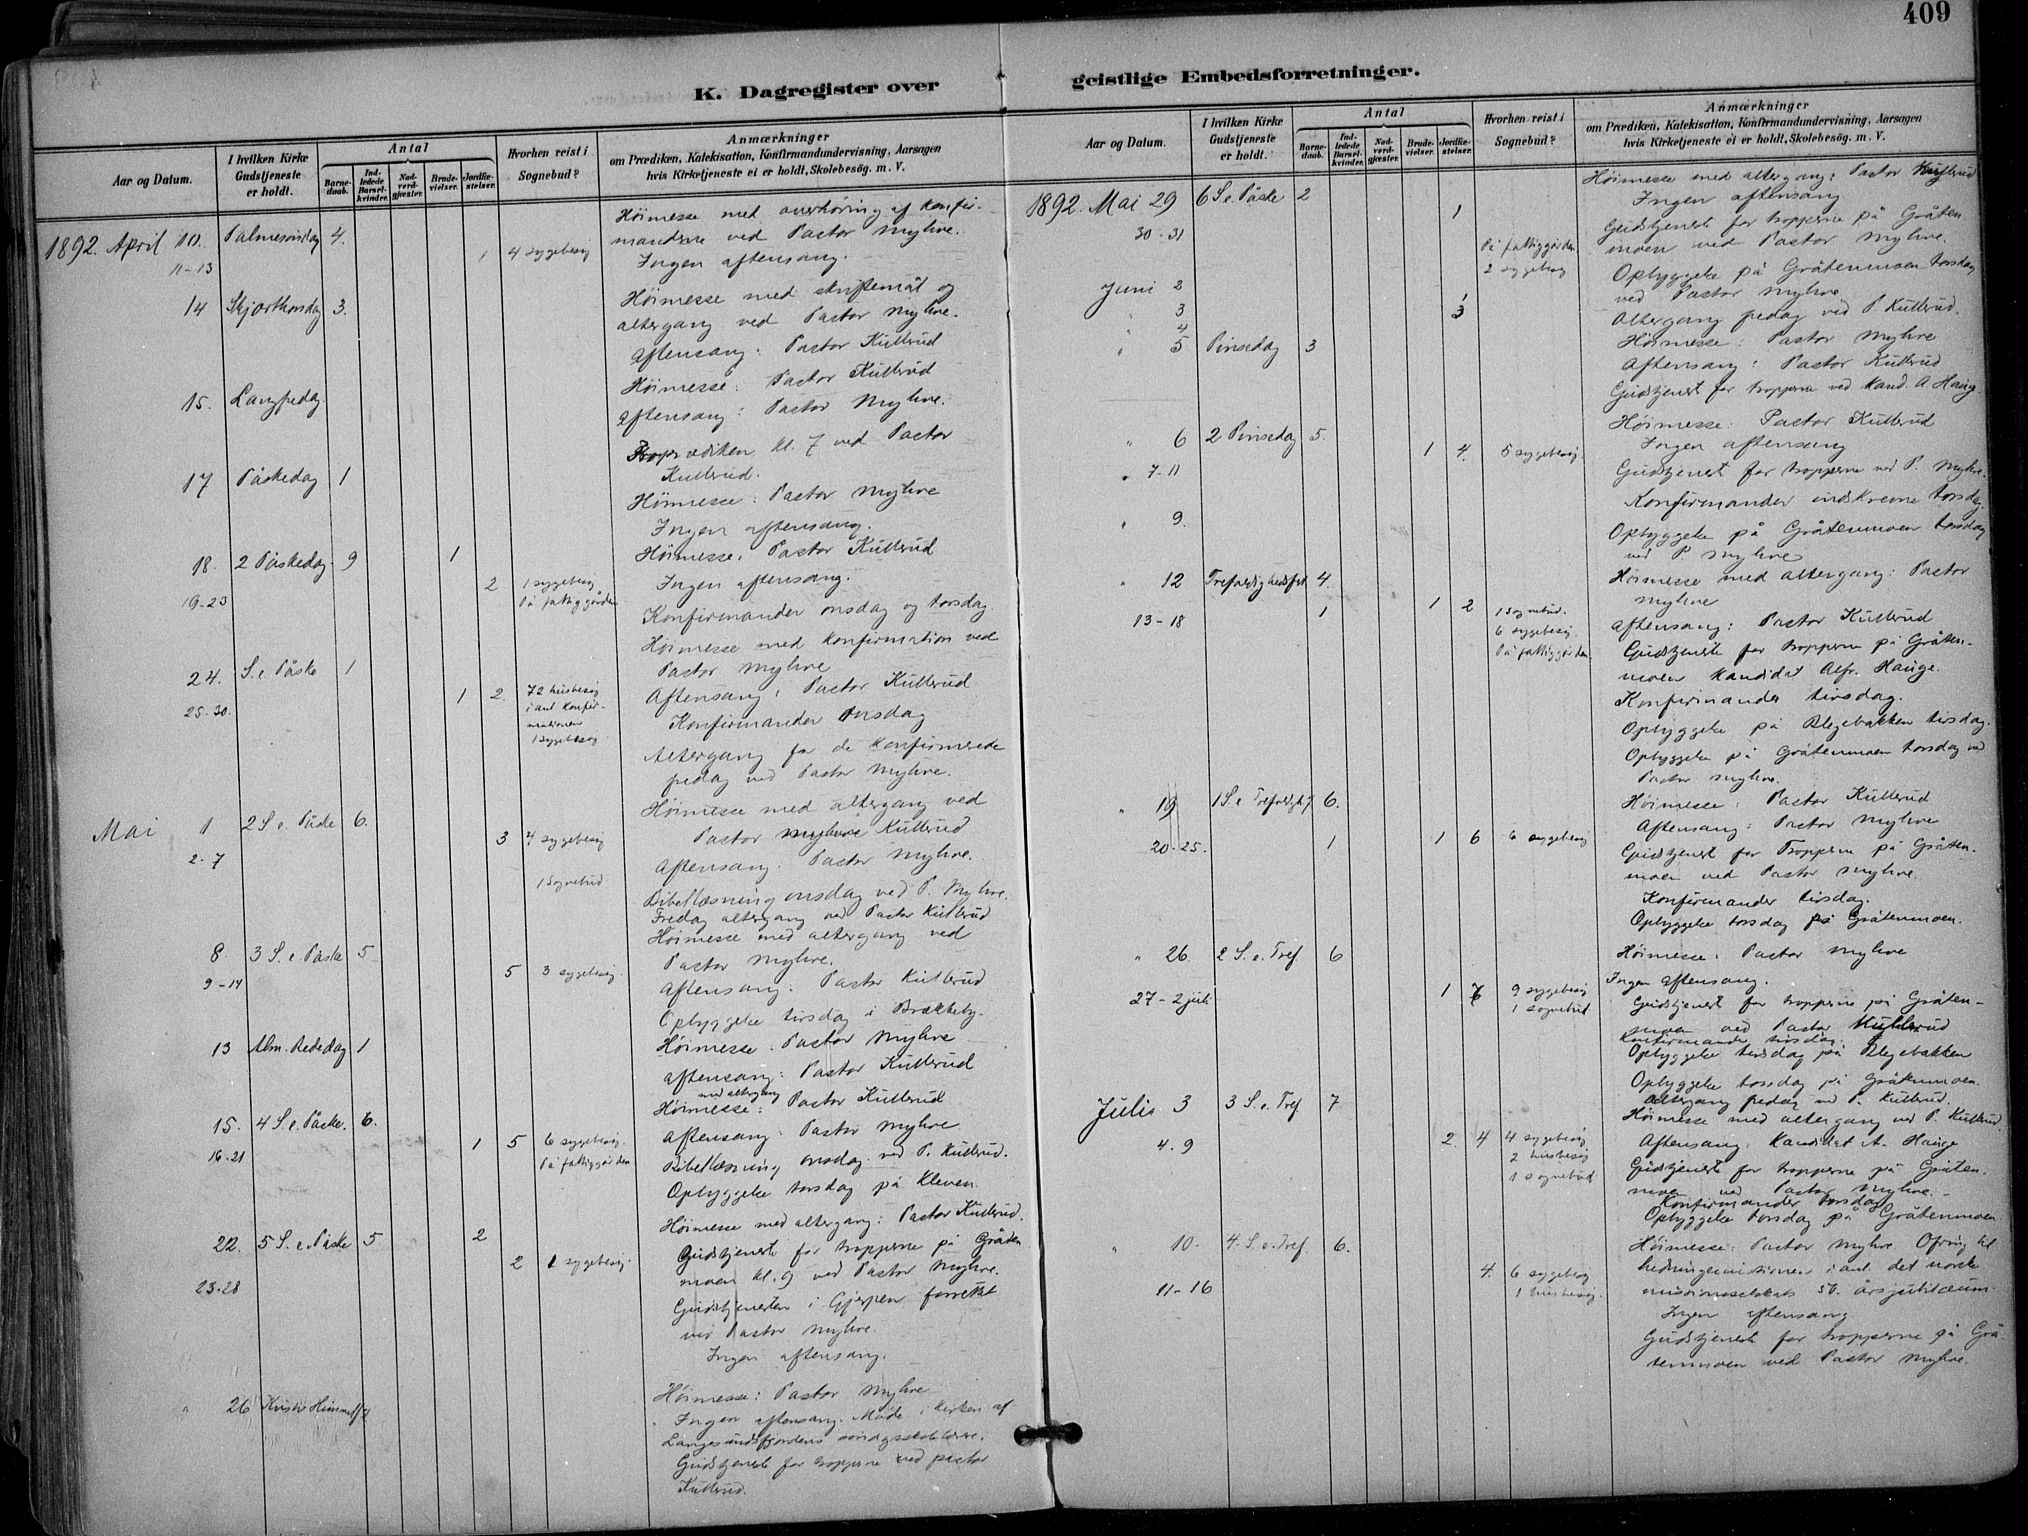 409
K. Dagregister over
geistlige Embedsforretninger.
Aar og Datum.
I hvilken Kirke Gudstjeneste er holdt.
Antal
Barnedaab.
Indledede Barselkvinder.
Nadverdgjæster.
Brudevielser.
Jordfæstelser.
Hvorhen reist i Sognebud?
Anmærkninger
om Prædiken, Katekisation, Konfirmandundervisning, Aarsagen
hvis Kirketjeneste ei er holdt, Skolebesög. m. V.
1892. April 10. Palmesöndag 4.
Höimesse med overhöring af konfir-
manderne ved Pastor Myhre.
11-13 1 4 sygebesög
Ingen aftensang.
14 Skjærthorsdag 3.
Höimesse med skriftemål og
altergang ved Pastor Myhre.
Aftensang: Pastor Kullerud
15. Langfredag.
Höimesse: Pastor Kullerud
Aftensang: Pastor Myhre.
prædiken kl. 7 ved Pastor
Kullerud.
17 Påskedag 1
Höimesse: Pastor Myhre
Ingen aftensang.
18. 2 Påskedag. 9 1
Höimesse: Pastor Kullerud
Ingen aftensang.
19-23 2 1 sygebesög
På fattiggården
Konfirmander onsdag og torsdag
24. S. e. Påske 1
Höimesse med konfirmation ved
Pastor Myhre
Aftensang: Pastor Kullerud
25-30. 1 2 72 husbesög
i anl. konfir-
mationen
1 sygebesög
Konfirmander onsdag
Altergang for de konfirmerede
fredag ved Pastor Myhre.
Mai 1 2 S. e. Påske 6.
Höimesse med altergang ved
Pastor Kullerud
Aftensang: Pastor Myhre.
2-7 3 4 sygebesög
1 Sognebud
Bibellæsning onsdag ved P. Myhre.
Fredag altergang ved Pastor Kullerud
8. 3 S. e. Påske 5
Höimesse med altergang ved
Pastor Myhre.
Aftensang: Pastor Kullerud
9-14 5 3 sygebesög.
Opbyggelse tirsdag i Brækkeby.
13 Alm. Bededag 1
Höimesse: Pastor Myhre
Aftensang: Pastor Kullerud
15. 4 S. e. Påske. 6.
med altergang
Höimesse: Pastor Kullerud
Aftensang: Pastor Myhre
16-21 1 5 6 sygebesög.
På fattiggården
Bibellæsning onsdag ved P. Kullerud.
Opbyggelse torsdag på Kleven.
22. 5 S. e. Påske 5 2
Höimesse med altergang: Pastor Kullerud.
Gudstjeneste for tropperne på Gråten
moen kl. 9 ved Pastor Myhre.
23-28 2 1 sygebesög.
Gudstjenesten i Gjerpen forrettet
ved Pastor Myhre.
Ingen aftensang.
" 26 Kristi Himmelf.
Höimesse: Pastor Myhre
Ingen aftensang. Möde i kirken af
Langesundsfjordens söndagsskolelærere.
Gudstjeneste for tropperne ved pastor
Kullerud.
Aar og Datum.
I hvilken Kirke Gudstjeneste er holdt.
Antal
Barnedaab.
Indledede Barselkvinder.
Nadverdgjæster.
Brudevielser.
Jordfæstelser.
Hvorhen reist i Sognebud?
Anmærkninger
om Prædiken, Katekisation, Konfirmandundervisning, Aarsagen
hvis Kirketjeneste ei er holdt, Skolebesög. m. V.
1892. Mai 29 6 S. e. Påske 2
Höimesse med altergang: Pastor Kullerud
Ingen aftensang
30-31 1 På fattiggården
2 sygebesög
Gudstjeneste for tropperne på Gråten
moen ved Pastor Myhre.
Juni 2
Opbyggelse på Gråtenmoen torsdag
ved Pastor Myhre
" 3
Altergang fredag ved P. Kullerud.
" 4 3
" 5 Pinsedag 3
Höimesse: Pastor Myhre
Aftensang: Pastor Kullerud
Gudstjenest for tropperne ved Kand. A. Hauge.
" 6 2 Pinsedag 5.
Höimesse: Pastor Kullerud
Ingen aftensang
" 7-11 1 4. 5 sygebesög.
Gudstjenest for tropperne ved P. Myhre.
Konfirmander indskrevne torsdag.
" 9.
Opbyggelse på Gråtenmoen torsdag
ved P. Myhre
" 12 Trefoldighedsfest 4.
Höimesse med altergang: Pastor
Myhre
Aftensang: Pastor Kullerud
13-18 1 1 2 1 Sognebud.
6 sygebesög.
På fattiggården.
Gudstjeneste for tropperne på Gråten-
moen Kandidat Alfr. Hauge.
Konfirmander tirsdag.
Opbyggelse på Blegebakken tirsdag.
Opbyggelse på Gråtenmoen torsdag ved
Pastor Myhre.
" 19 1 S. e. Trefoldighf. 6.
Höimesse: Pastor Kullerud
Aftensang: Pastor Myhre
20-25. 1 1 6 6 sygebesög
Gudstjenest for Tropperne på Gråten-
moen ved Pastor Myhre.
Konfirmander tirsdag.
Opbyggelse torsdag på Gråtenmoen.
" 26. 2 S. e. Tref 6
Höimesse: Pastor Myhre
Ingen aftensang.
27-2 juli 1 7 9 sygebesög
1 sognebud
Gudstjenest for tropperne på Gråten-
moen ved Pastor Kullerud
Konfirmander tirsdag.
Opbyggelse tirsdag på Blegebakken
Opbyggelse torsdag på Gråtenmoen.
Altergang fredag ved P. Kullerud.
Juli 3 3 S. e. Tref 7
Höimesse med altergang ved P. Kullerud.
Aftensang: Kandidat A. Hauge
4-9 2 4 4 sygebesög
2 husbesög
1 sognebud
Gudstjeneste for tropperne på Gråten-
moen ved Pastor Myhre.
Konfirmander torsdag
Opbyggelse torsdag på Gråtenmoen.
" 10. 4. S. e. Tref. 6.
Höimesse: Pastor Myhre Ofring til
hedningemissionen i anl. det norske
missionsselskabs 50-årsjubilæum.
11-16 4. 6 sygebesög
1 husbesög.
Ingen aftensang.
Gudstjeneste for tropperne på Grå-
tenmoen ved Pastor Myhre.